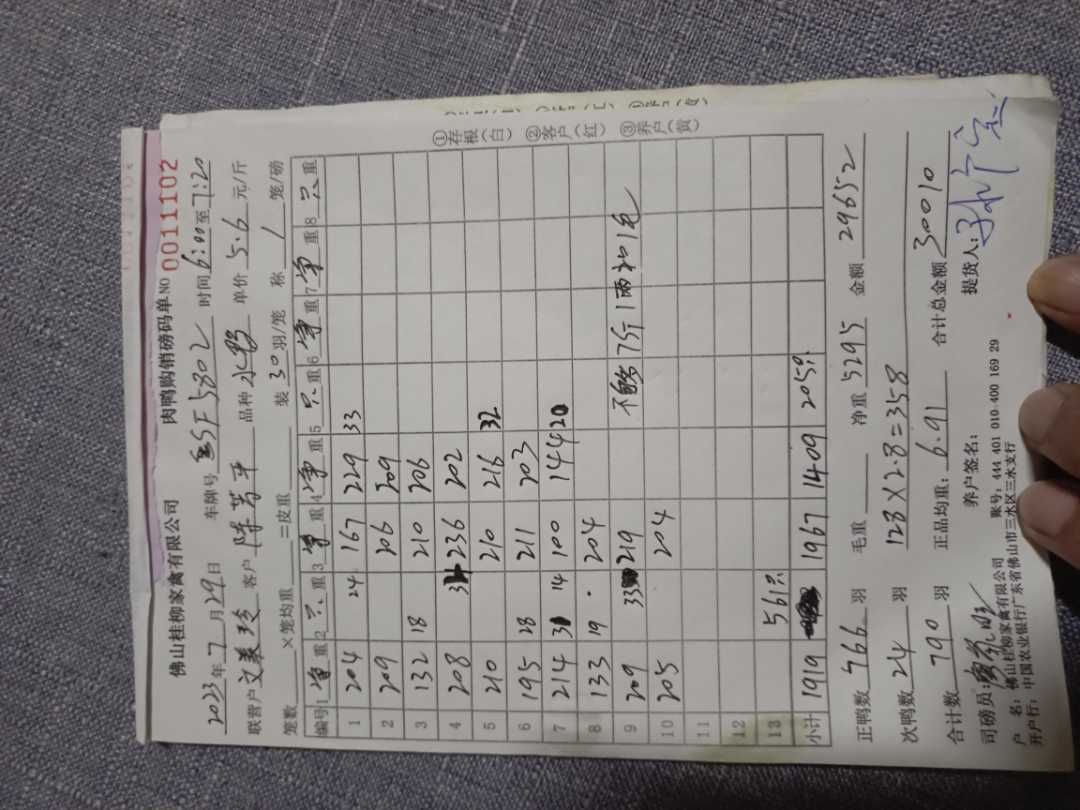 佛山桂柳家禽有限公司 肉鸭购销磅码单 NO 0011102
2023年7月29日 车牌号 5F5802 时间 6:00至7:20
联营户 客户 品种 水鸭 单价 5.6 元/斤
笼数 ×笼均重 =皮重 装 30 羽/笼 称 1 笼/磅
编号 1 重 2 只 重 3 重 4 净 重 5 只 重 6 净 重 7 净 重 8 只 重
1 204 24 167 229 33
2 209 206 209
3 132 18 210 206
4 208 236 202
5 210 210 216 32
6 195 28 211 203
7 214 31 14 100 144 20
8 133 19 204
9 209 33 219 不够7斤1两扣1毛
10 205 204
11
12
13 561只
小计 1919 1967 1409 205只
正鸭数 766 羽 毛重 净重 5295 金额 29652
次鸭数 24 羽 128×2.8=358
合计数 790 羽 正品均重: 6.91 合计总金额 30010
司磅员: 养户签名: 提货人:
户 名: 佛山桂柳家禽有限公司 账号: 444 401 010 400 169 29
开户行: 中国农业银行广东省佛山市三水区三水支行
①存根(白) ②客户(红) ③养户(黄)